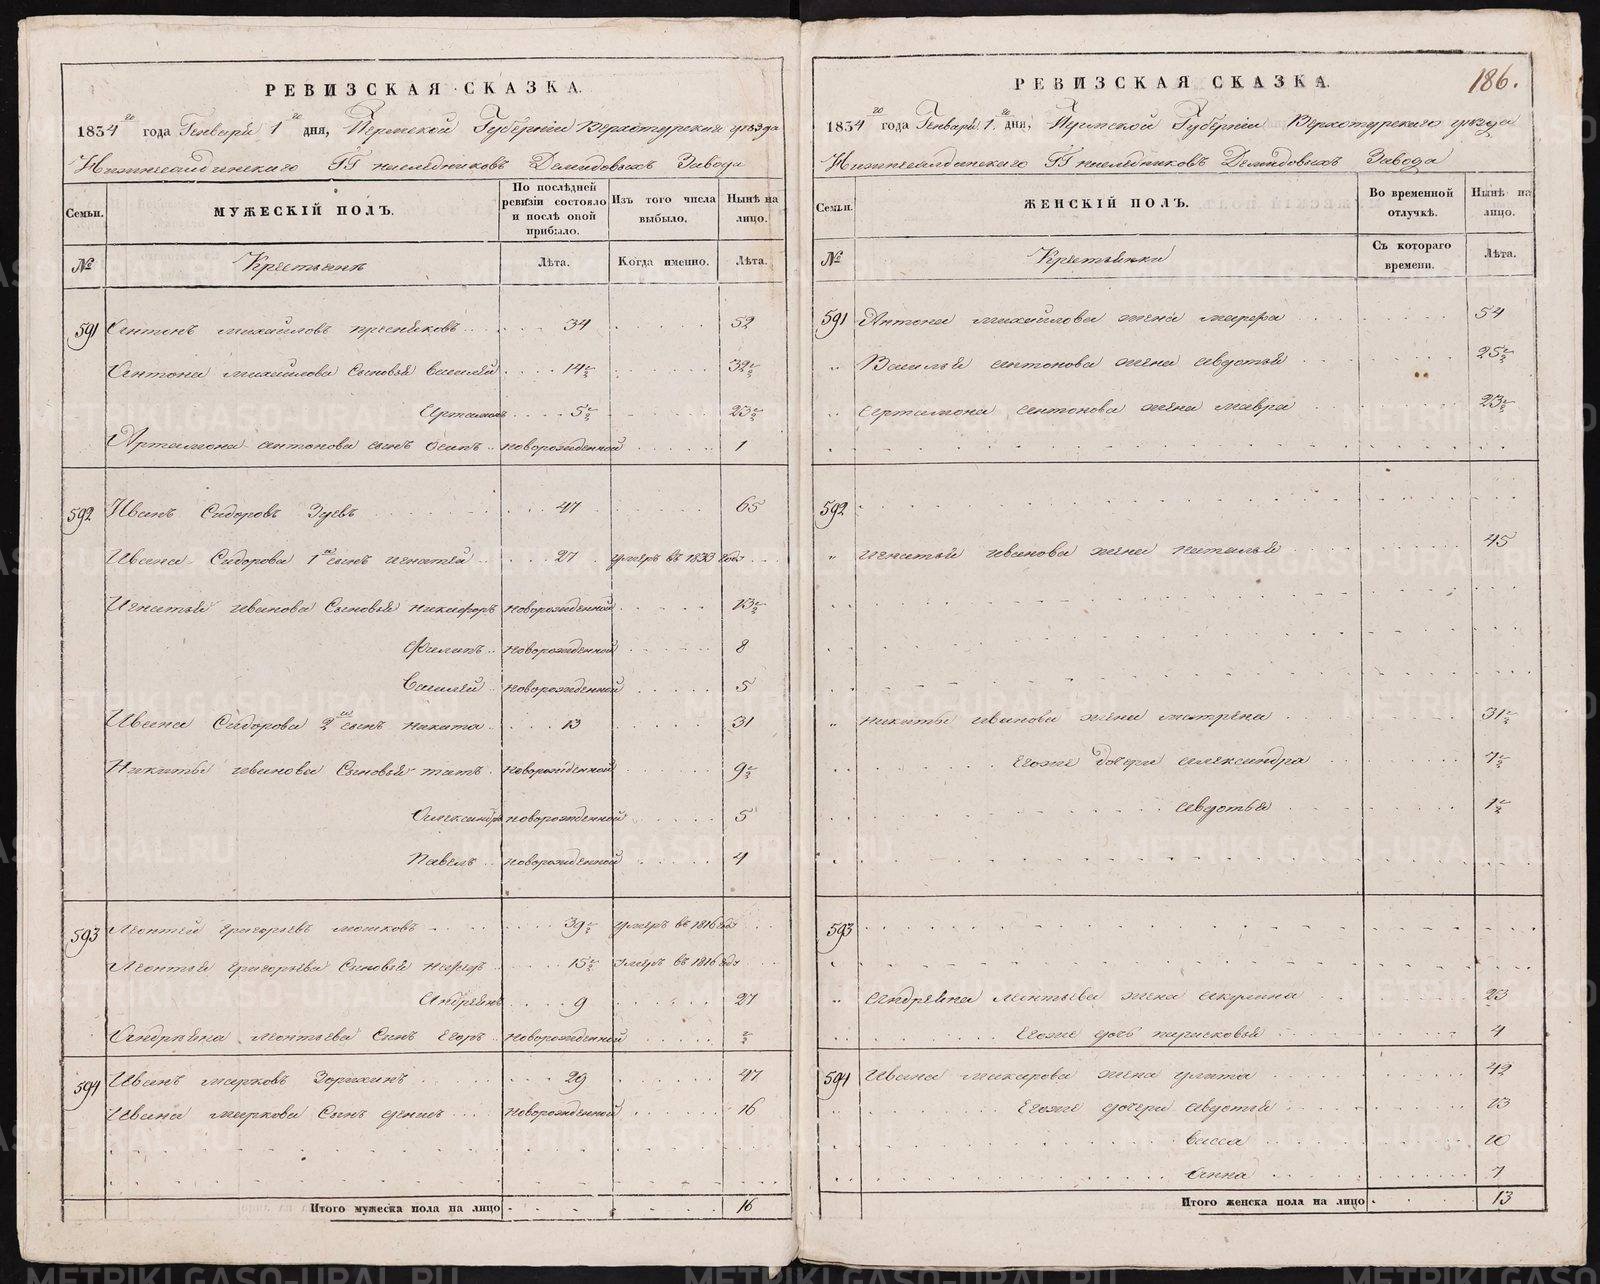 РЕВИЗСКАЯ СКАЗКА.
1834го года Генваря 1го дня, Пермской Губернiи Верхотурскаго уѣзда
Нижнесалдинскаго ГГ наслѣдниковъ Демидовыхъ Завода
Семьи. МУЖЕСКIЙ ПОЛЪ. По послѣдней ревизiи состояло и послѣ оной прибыло. Изъ того числа выбыло. Нынѣ на лицо.
№ Крестьянъ Лѣта. Когда именно. Лѣта.
591 Антонъ михайловъ пресняковъ 34 52
Антона михайлова Сыновья василей 14½ 32½
Артамонъ 5½ 23½
Артамона антонова сынъ Осипъ новорожденной 1
592 Иванъ Сидоровъ Зуевъ 47 65
Ивана Сидорова 1й сынъ игнатей 27 умеръ въ 1833 году
Игнатья иванова Сыновья никифоръ новорожденной 13½
Филипъ новорожденной 8
Василей новорожденной 5
Ивана Сидорова 2й сынъ никита 13 31
Никиты иванова Сыновья новорожденной 9½
Александръ новорожденной 5
Павелъ новорожденной 4
593 Леонтей григорьевъ мошковъ 39½ умеръ въ 1816 году
Леонтья григорьева Сыновья 15½ умеръ въ 1816 году
Андреянъ 9 27
Андреяна леонтьева Сынъ Егоръ новорожденной ½
594 Иванъ марковъ Зорихинъ 29 47
Ивана маркова Сынъ денисъ новорожденной 16
Итого мужеска пола на лицо 16
186.
РЕВИЗСКАЯ СКАЗКА.
1834го года Генваря 1го дня, Пермской Губернiи Верхотурскаго уѣзда
Нижнесалдинскаго ГГ наслѣдниковъ Демидовыхъ Завода
Семьи. ЖЕНСКIЙ ПОЛЪ. Во временной отлучкѣ. Нынѣ на лицо.
№ Крестьянки Съ котораго времени. Лѣта.
591 Антона михайлова жена марфа 54
" Василья антонова жена авдотья 25½
" Артамона антонова жена мавра 23½
592
" игнатья иванова жена наталья 45
" никиты иванова жена матрена 31½
Егоже дочери александра 7½
авдотья 1½
593
" Андреяна леонтьева жена акулина 23
Егоже дочь парасковья 4
594 Ивана макарова жена улита 42
Егоже дочери авдотья 13
васса 10
Анна 7
Итого женска пола на лицо 13
METRIKI.GASO-URAL.RU